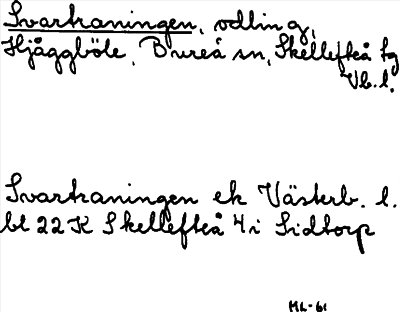 Svartraningen, odling,
Hjåggböle, Bureå sn, Skellefteå tg
Vb.l.
Svartraningen ek Västerb. l.
bl 22K Skellefteå 4i Sidtorp
ML-61